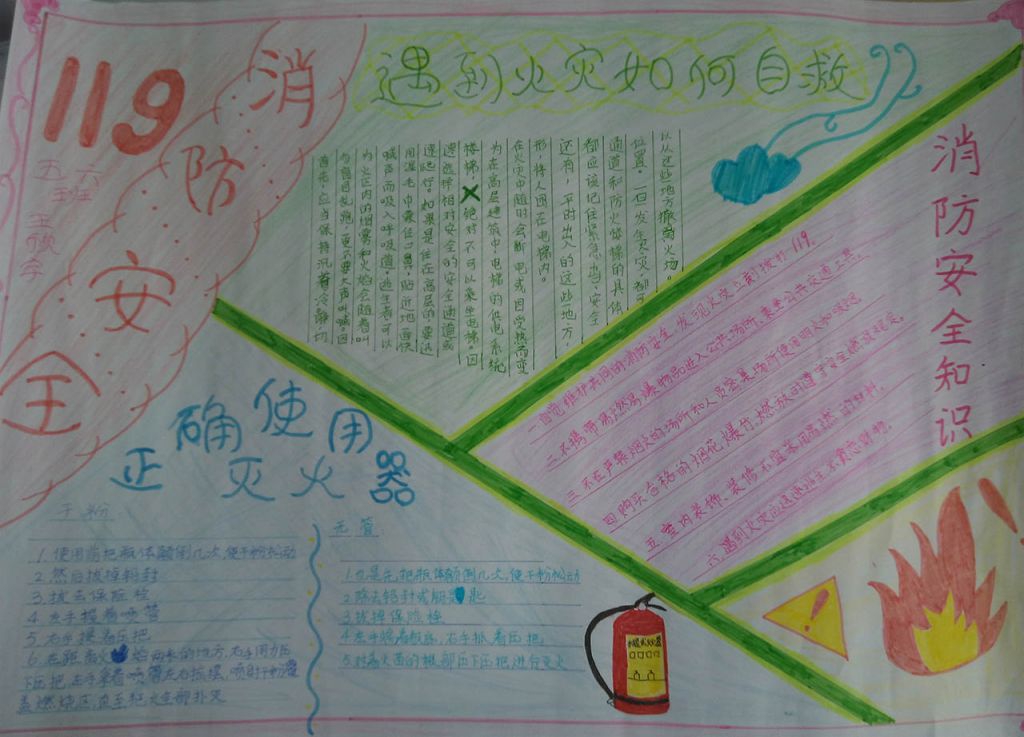 119
消防安全
五 六班
王
遇到火灾如何自救
首先,应当保持沉着冷静,切
勿盲目乱跑,更不要大声叫喊。因
为火区内的烟雾和火焰会随着叫
喊声而吸入呼吸道,逃生者可以
用湿毛巾囊住口鼻,贴近地面快
速爬行。如果是住在高层的要迅
速选择相对安全的安全通道或
楼梯。绝对不可以乘坐电梯,因
为在高层建筑中电梯的供电系统
在火灾中随时会断电或因受热而变
形,将人困在电梯内。
还有,平时出入的这些地方,
都应该记住紧急出口、安全
通道和防火楼梯的具体
位置,一旦发生火灾,都可
以从这些地方撤离火场。
消防安全知识
一 自觉维护共同的消防安全,发现火灾立刻拨打119。
二 不携带易燃易爆物品进入公共场所、乘坐公共交通工具。
三 不在严禁烟火的场所和人员密集场所使用明火和吸烟。
四 购买合格的烟花、爆竹,燃放时遵守安全燃放规定。
五 室内装饰、装修不宜采用易燃的材料。
六 遇到火灾迅速逃生不贪恋财物。
正确使用
灭火器
干粉
1.使用前把瓶体颠倒几次,使干粉松动
2.然后拔掉铅封
3.拔去保险栓
4.左手握着喷管
5.右手提着压把
6.在距离火焰两米的地方,右手用力压
下压把,左手拿着喷管左右摇摆,喷射干粉覆
盖燃烧区,直至把火全部扑灭
无管
1.也是先把瓶体颠倒几次,使干粉松动
2.除去铅封或钥匙
3.拔掉保险栓
4.左手握着瓶底,右手抓着压把
5.对着火苗的根部压下压把进行灭火